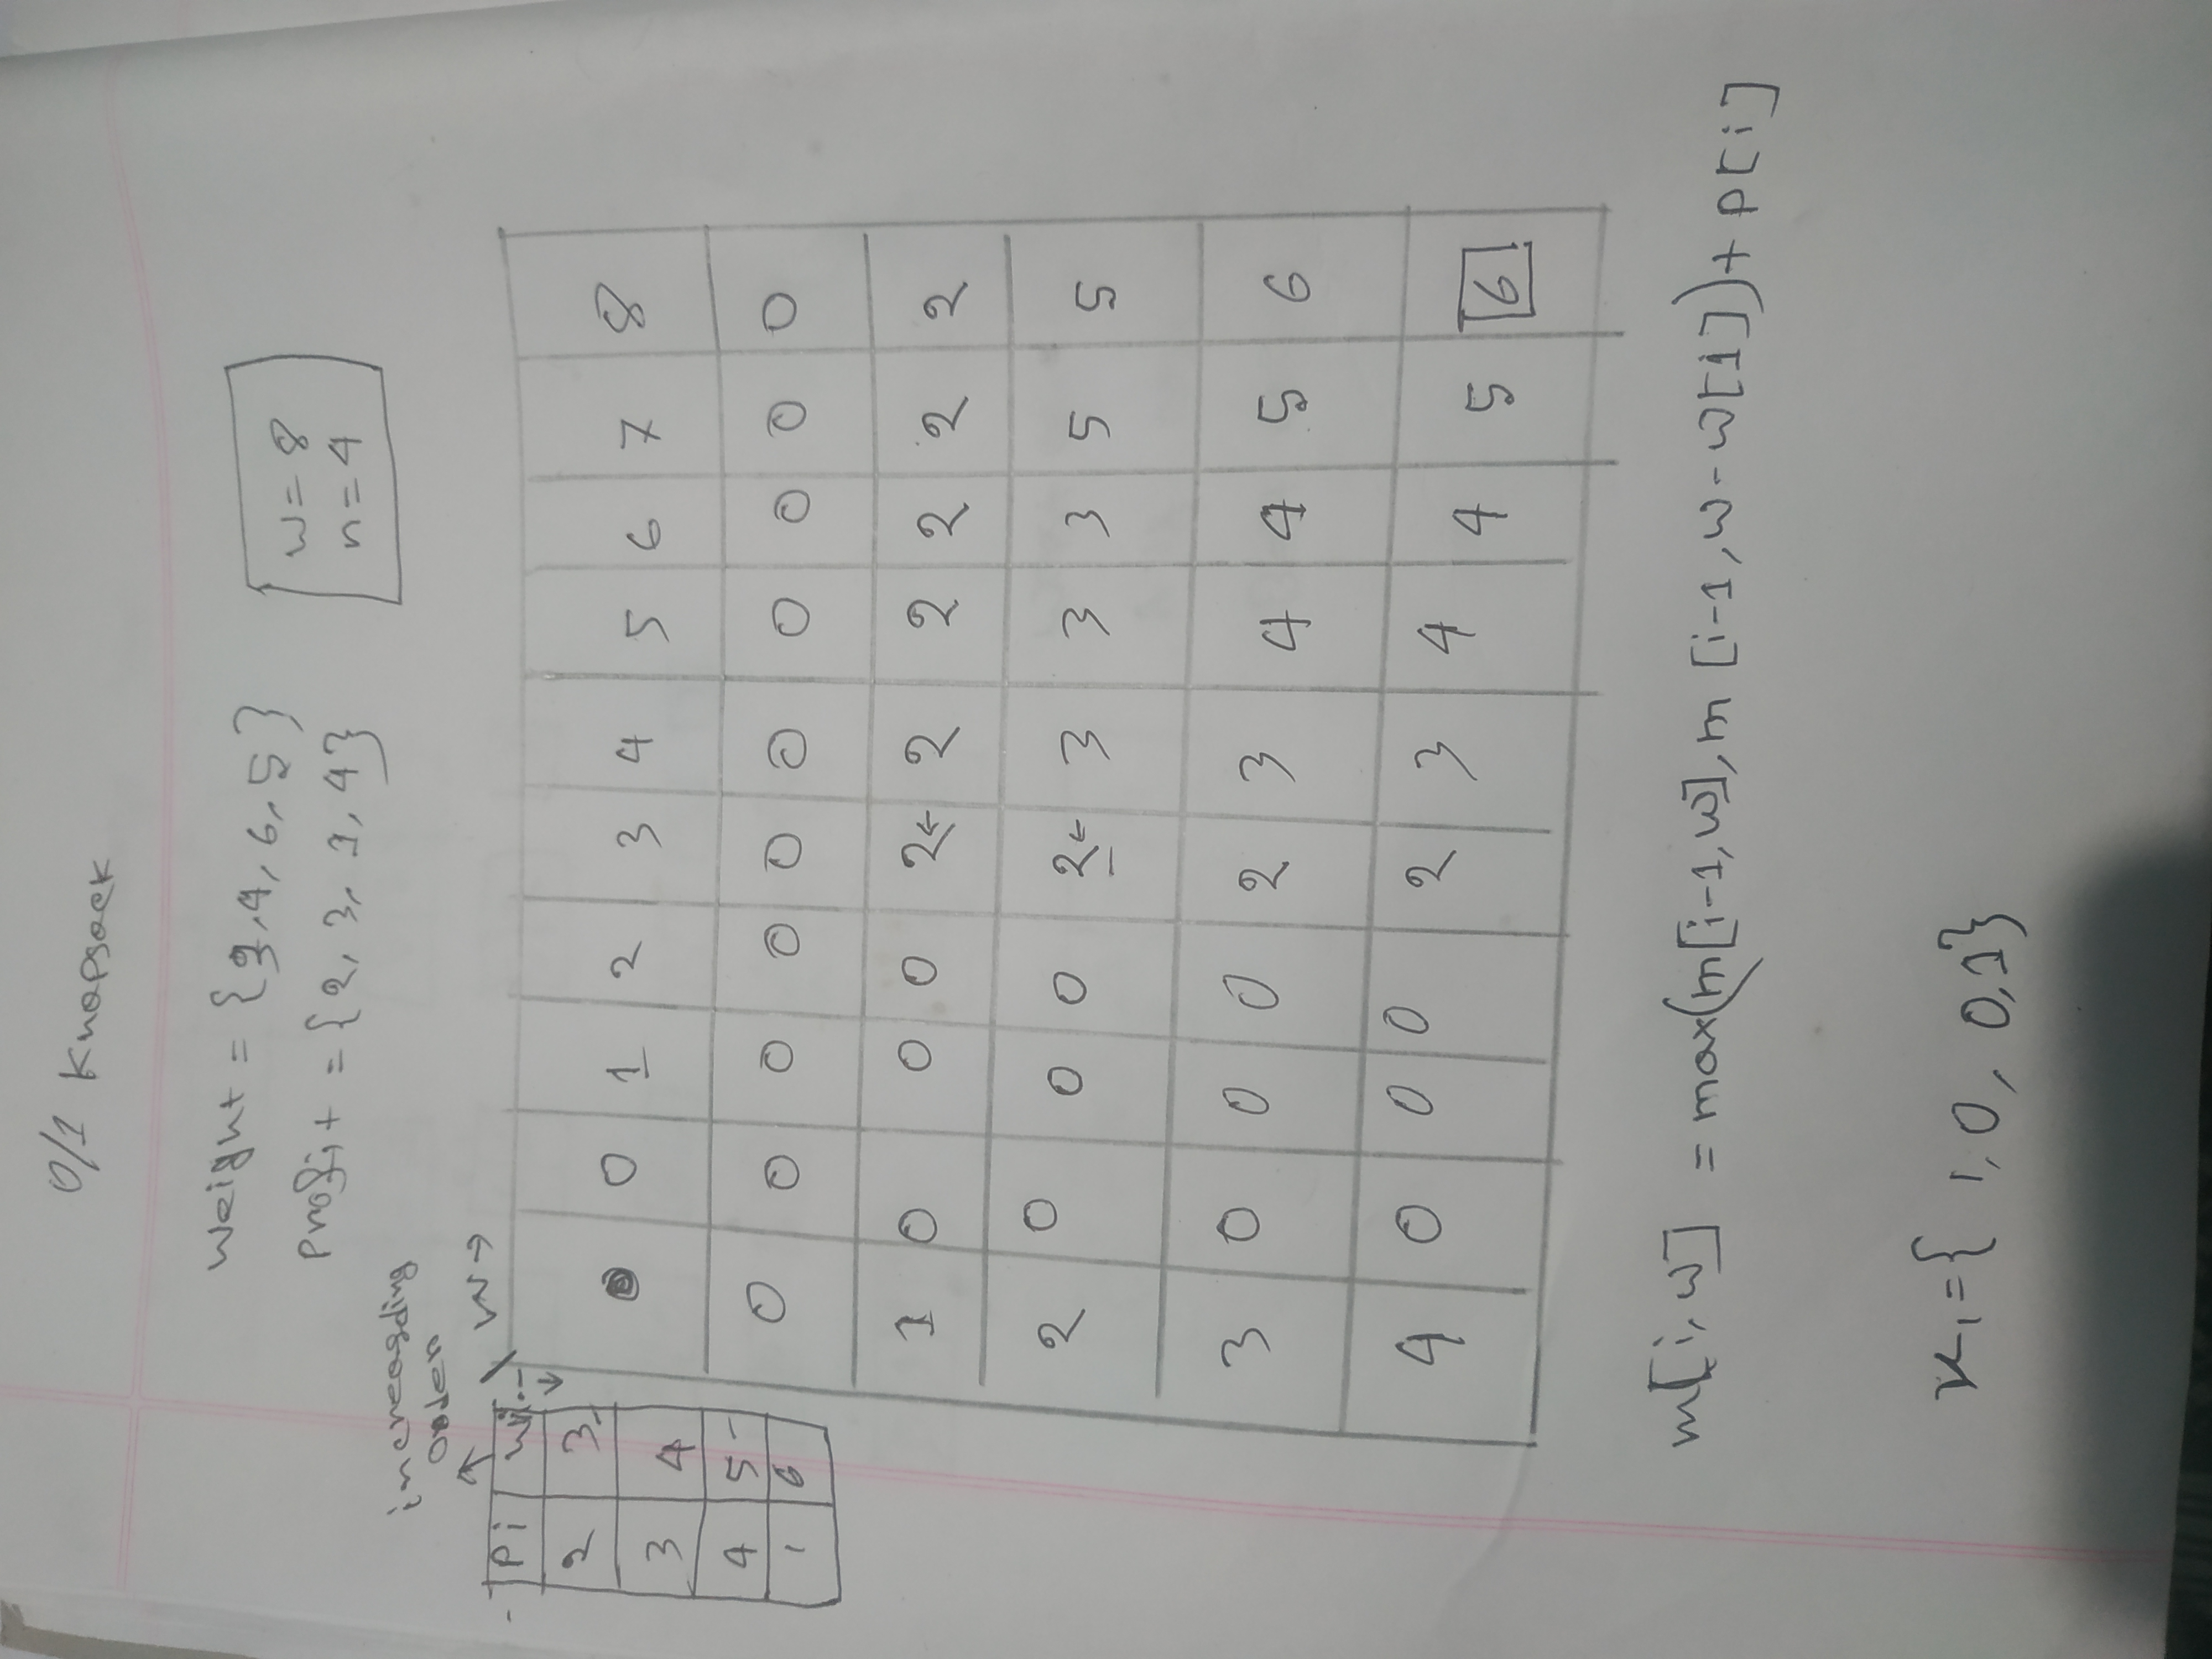 0/1 Knapsack
Weight = {3, 4, 6, 5}
Profit = {2, 3, 1, 4}
W = 8
n = 4
increasding
order
W →
Pi Wi
2 3
3 4
4 5
1 6
0 1 2 3 4 5 6 7 8
0 0 0 0 0 0 0 0 0 0
1 0 0 0 2← 2 2 2 2 2
2 0 0 0 2← 3 3 3 5 5
3 0 0 0 2 3 4 4 5 6
4 0 0 0 2 3 4 4 5 6
m[i, w] = max(m[i-1, w], m [i-1, w - w[1]) + P[i]
x1 = { 1, 0, 0, 1}